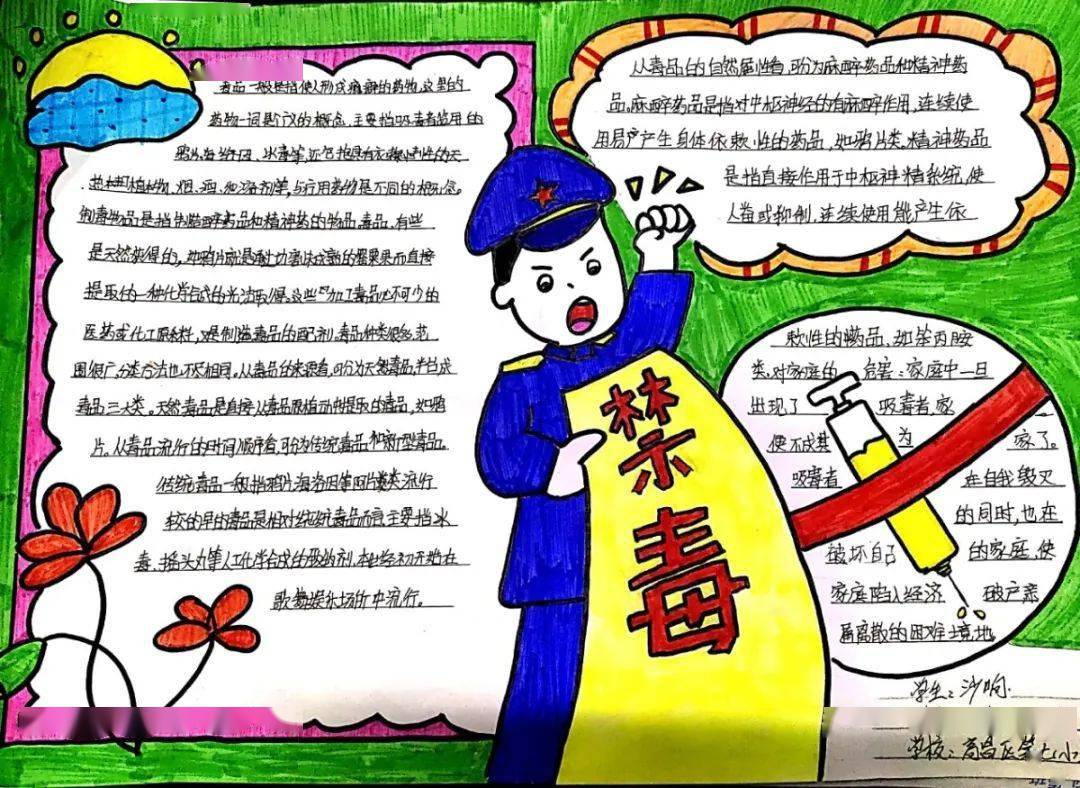 毒品一般是指使人形成瘾癖的药物,这里的
药物一词是广义的概念,主要指吸毒者滥用的
鸦片、海洛因、冰毒等,还包括具有依赖性的天
然植物、烟、酒、和溶剂等,与疗用药物是不同的概念。
制毒物品是指制麻醉药品和精神药的物品,毒品,有些
是天然获得的,如鸦片就是通过切割未成熟的罂粟果而直接
提取的一种化学合成的光法取得。这些加工毒品必不可少的
医药或化工原料,是制造毒品的配剂。毒品种类很多,范
围很广,分类方法也不尽相同。从毒品的来源看,可分为天然毒品,半合成
毒品,三大类。天然毒品是直接从毒品原植物中提取的毒品,如鸦
片。从毒品流行的时间顺序看,可分为传统毒品和新型毒品。
传统毒品一般指鸦片海洛因等阿片类流行
较的早的毒品是相对传统毒品而言,主要指冰
毒、摇头丸等人工化学合成的
歌舞娱乐场所中流行。
从毒品的自然属性看,可分为麻醉药品和精神药
品,麻醉药品是指对中枢神经的有麻醉作用,连续使
用易产产生身体依赖性的药品,如鸦片类,精神药品
是指直接作用于中枢神精系统,使
人奋或抑制,连续使用能产生依
赖性的药品、如苯丙胺
类,对家庭的 危害:家庭中一旦
出现了 吸毒者,家
便不成其 为 家了。
吸毒者 在自我毁灭
的同时,也在
破坏自己 的家庭,使
家庭陷入经济 破产亲
属离散的困难境地
禁毒
学生:沙响
学校:高昌区第七小